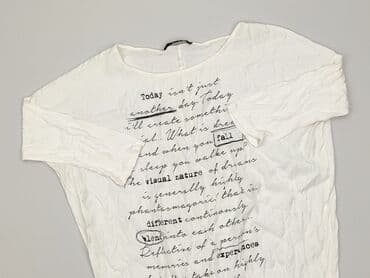 Today isn't just
another day. Today
i'll create somethi
ial. What is drea
and when you fall
sleep you wake up
The visual nature of dreams
is generally highly
phantasmagoric that is
different continously
blent into each other
Reflective of a person's
memories and experiences
take on highly